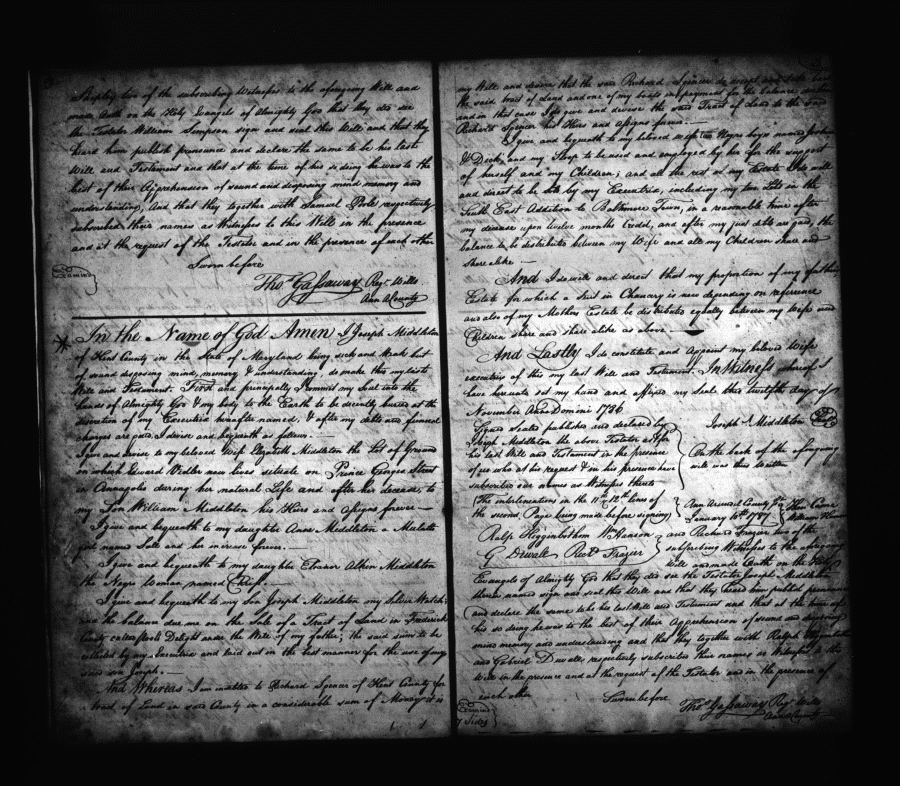 Shipley two of the subscribing Witnesses to the aforegoing Will and
made Oath on the Holy Evangels of Almighty God that they did see
the Testator William Simpson sign and seal this Will and that they
heard him publish pronounce and declare the same to be his last
Will and Testament and that at the time of his so doing he was to the
best of their Apprehension of sound and disposing mind memory and
understanding, And that they together with Samuel Pole respectively
subscribed their names as Witnesses to this Will in the presence
and at the request of the Testator and in the presence of each other
Sworn before
Examined
Thos. Gassaway Regr. Wills
Ann A County
In the Name of God Amen I Joseph Middleton
of Kent County in the State of Maryland being sick and Weak but
of sound disposing mind, memory & understanding, do make this my last
Will and Testament. First and principally I commit my Soul into the
hands of Almighty God & my body to the Earth to be decently buried at the
discretion of my Executrix hereafter named, & after my debts and funeral
charges are paid, I devise and bequeath as follows.—
I give and devise to my beloved Wife Elizabeth Middleton the Lot of Ground
on which Edward Vidler now lives situate on Prince Georges Street
in Annapolis during her natural Life and after her decease to
my Son William Middleton his Heirs and Assigns forever —
I give and bequeath to my daughter Anne Middleton a Mulatto
girl named Sall and her increase forever.—
I give and bequeath to my daughter Eleanor Middleton
the Negro Woman named
I give and bequeath to my Son Joseph Middleton my Silver Watch;
and the balance due me on the Sale of a Tract of Land in Frederick
County called Delight under the Will of my father; the said sum to be
collected by my Executrix and laid out in the best manner for the use of my
said son Joseph.—
And Whereas I am indebted to Richard Spencer of Kent County for
a tract of Land in said County in a considerable sum of Money it is
my Will and desire that the said Richard Spencer do accept and take back
the said tract of Land and one of my in payment for the balance
and in that case I do give and devise the said Tract of Land to the said
Richard Spencer his Heirs and Assigns forever.—
I give and bequeath to my beloved wife two Negro boys named
& Dick, and my Sloop to be used and employed by her for the support
of herself and my Children; and all the rest of my Estate I do will
and direct to be sold by my Executrix, including my two Lots in the
South East Addition to Baltimore Town, in a reasonable time after
my decease upon twelve months Credit, and after my just debts are paid, the
balance to be distributed between my Wife and all my Children share and
share alike —
And I do will and direct that my proportion of my fathers
Estate for which a Suit in Chancery is now depending on reference
and also of my Mothers Estate be distributed equally between my Wife and
Children share and share alike as above —
And Lastly I do constitute and Appoint my beloved Wife
executrix of this my last Will and Testament. In Witness whereof I
have hereunto set my hand and affixed my Seal this twelfth day of
November Anno Domini 1786
Joseph Middleton
Signed Sealed published and declared by
Joseph Middleton the above Testator as & for
his last Will and Testament in the presence
of us who at his request & in his presence have
subscribed our names as Witnesses thereto
(The interlineations in the 11th & 12th lines of
the second Page being made before signing)
Ralph Higginbothom Wm Hanson
G Duvall Richd. Frazier
On the back of the aforegoing
will was thus written
Ann Arundel County
January 15th 1787
Then Came
William
and Richard Frazier two of the
subscribing Witnesses to the aforegoing
Will and made Oath on the Holy
Evangels of Almighty God that they did see the Testator Joseph Middleton
therein named sign and seal this Will and that they heard him publish pronounce
and declare the same to be his last Will and Testament and that at the time of
his so doing he was to the best of their Apprehension of sound and disposing
mind memory and understanding and that they together with Ralph Higginbothom
and Gabriel Duvall respectively subscribed their names as Witnesses to this
Will in the presence and at the request of the Testator and in the presence of
each other
Sworn before
Thos. Gassaway Regr. Wills
Ann A County
Examined
7 Sides